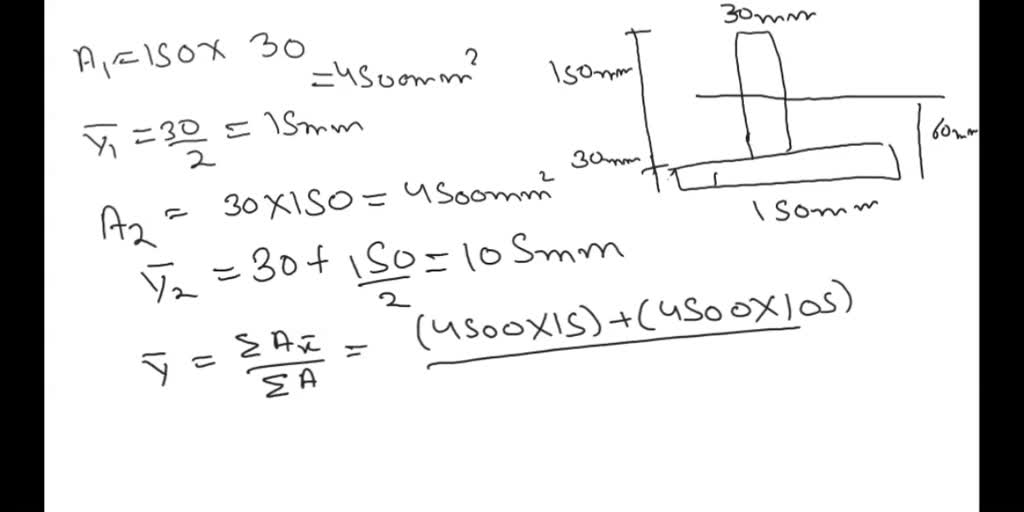 A₁ = 150 × 30
= 4500mm²
ȳ₁ = 30/2 = 15mm
A₂ = 30×150 = 4500mm²
ȳ₂ = 30 + 150/2 = 105mm
ȳ = ΣAx̄/ΣA = (4500×15)+(4500×105)
30mm
150mm
60mm
30mm
150mm